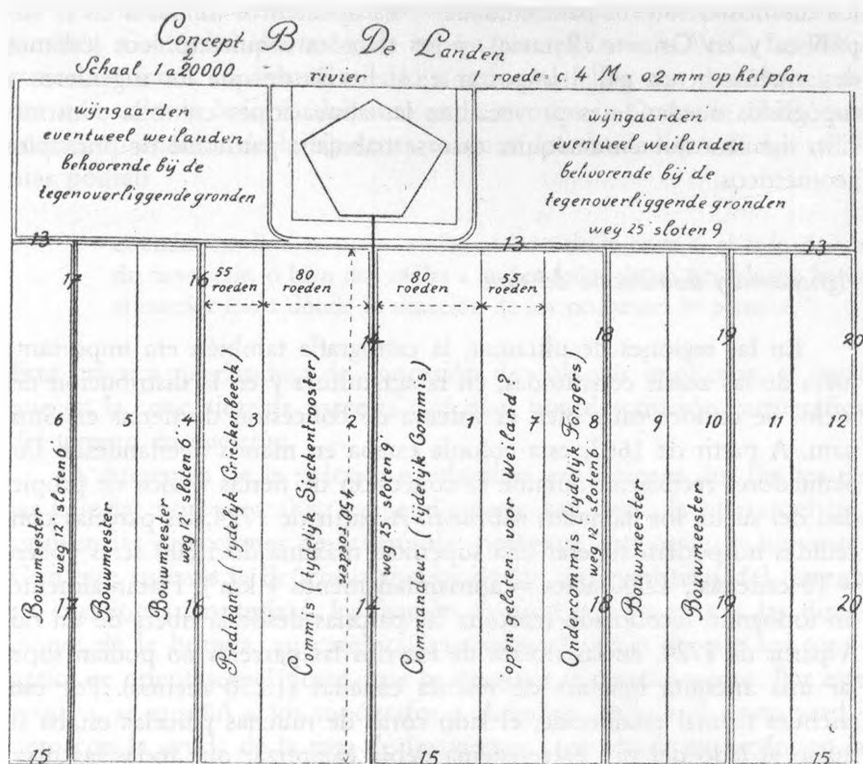 Concept B. De Landen
Schaal 1 a 20000
rivier
roede = 4 M = 0.2 mm op het plan
wijngaarden
eventueel weilanden
behoorende bij de
tegenoverliggende gronden
wijngaarden
eventueel weilanden
behoorende bij de
tegenoverliggende gronden
weg 25 sloten 9
13
13
13
17
16
55
roeden
80
roeden
80
roeden
roeden
14
18
19
20
6
5
4
3
2
1
7
8
9
10
11
12
Bouwmeester
weg 12 sloten 6
Bouwmeester
Bouwmeester
weg 12 sloten 6
Predikant (tydelyk Grichenbeech)
Commis (tydelyk Sweerenrooster)
roeden
weg sloten 9
Commandeur (tydelyk Commis)
open gelaten voor Weiland
Ondercommis (tydelyk Fongers)
weg 12 sloten 6
Bouwmeester
Bouwmeester
17
16
14
18
19
20
15
15
15